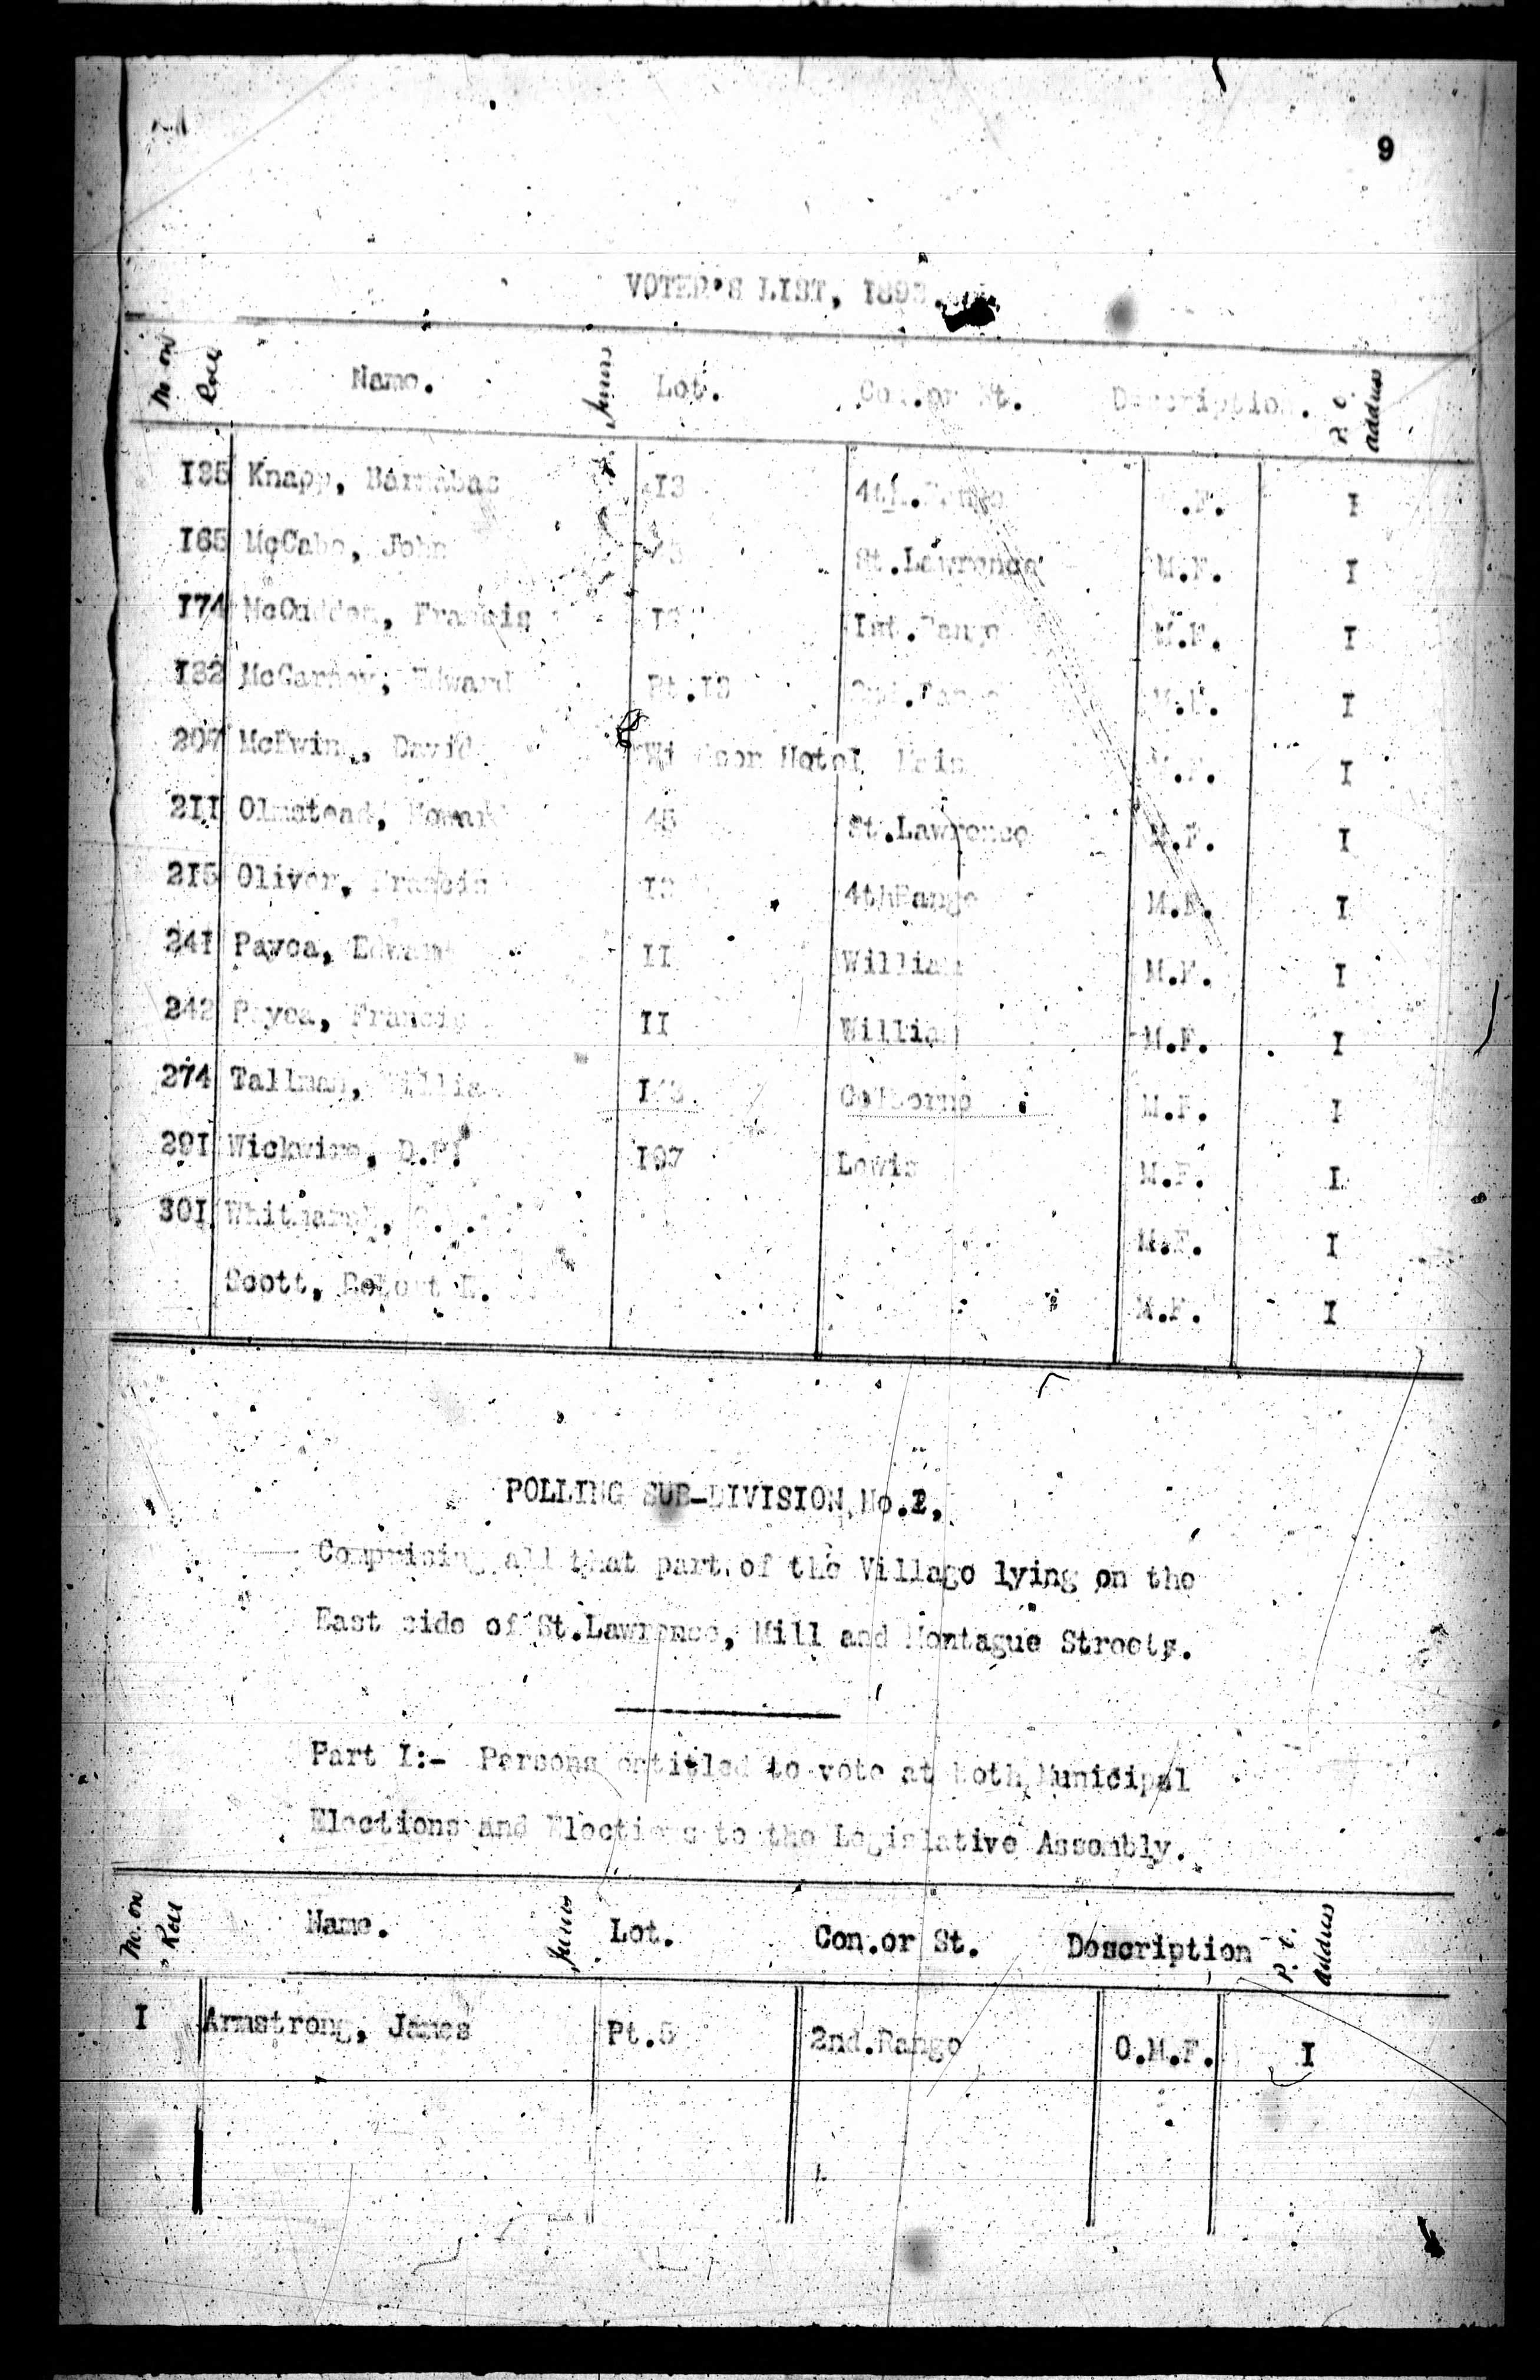 9
VOTER'S LIST, 189
No. on Roll Name. Juror Lot. Con.or St. Description. P. O. address
135 Knapp, Barnabas 13 4th.Range .F. I
165 McCabe, John St.Lawrence M.F. I
174 McCudden, Francis 1st.Range M.F. I
182 Edward Pt.13 M.F. I
207 David Windsor Hotel Main M.F. I
211 Olmstead, 45 St.Lawrence M.F. I
215 Oliver, Francis 13 4thRange M.F. I
241 Payea, Edward II William M.F. I
242 Payea, Francis II William M.F. I
274 Tallman, Colborne M.F. I
291 Wickwire, D.F. 197 Lewis M.F. I
301 M.F. I
Scott, Robert M.F. I
POLLING SUB-DIVISION No.2.
Comprising all that part of the Village lying on the
East side of St.Lawrence, Mill and Montague Streets.
Part I:- Persons entitled to vote at both Municipal
Elections and Elections to the Legislative Assembly.
No. on Roll Name. Juror Lot. Con.or St. Description P. O. address
I Armstrong, James Pt.5 2nd.Range O.M.F. I